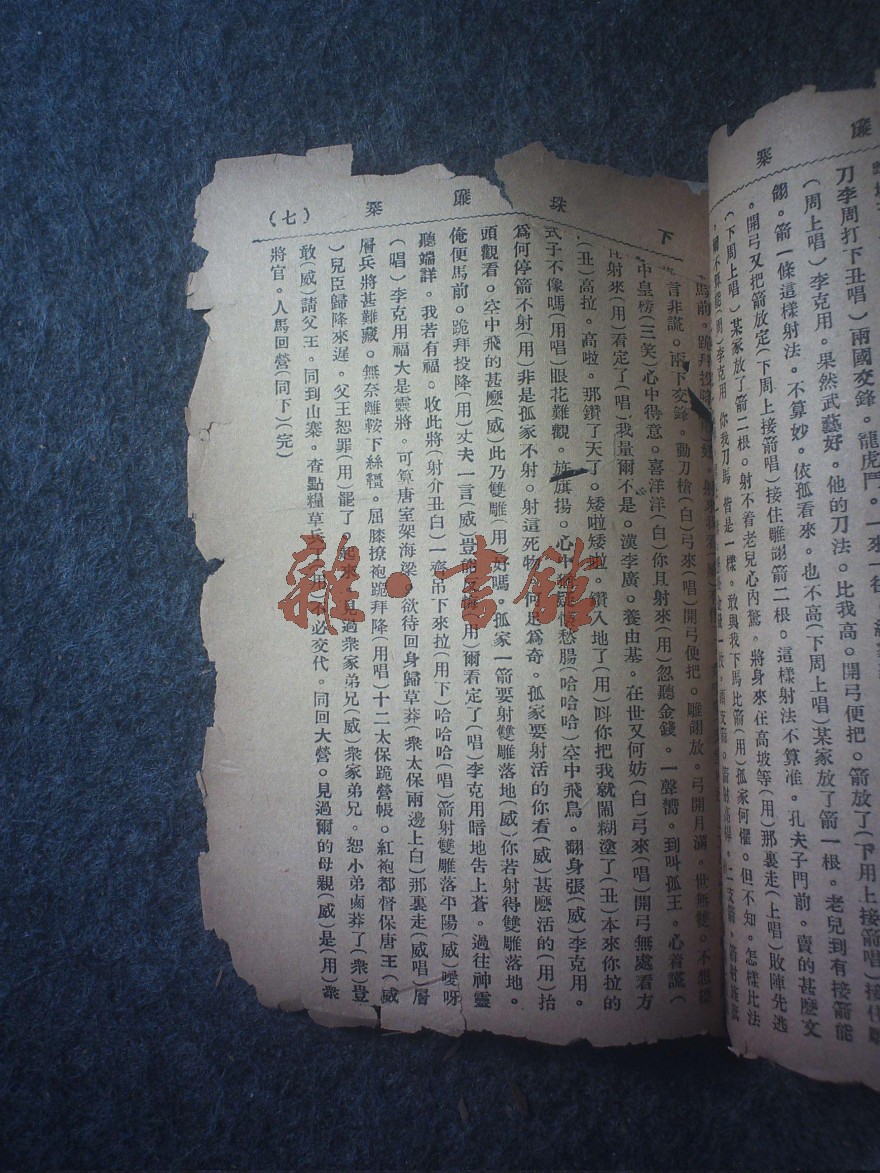 廉
寨
刀李周打下丑唱)兩國交鋒。龍虎鬥。一來一往
(周上唱)李克用。果然武藝好。他的刀法。比我高。開弓便把。箭放了(下用上接箭唱)接住
翎。箭一條這樣射法。不算妙。依孤看來。也不高(下周上唱)某家放了箭一根。老兒到有接箭能
。開弓又把箭放定(下周上接箭唱)接住雕翎箭二根。這樣射法不算准。孔夫子門前。賣的甚麽文
(下周上唱)某家放了箭二根。射不着老兒心內驚。將身來在高坡等(用)那裏走(上唱)敗陣先逃
李克用 你我刀馬 皆是一樣。敢與我下馬比箭(用)孤家何懼。但不知。怎樣比法
下
珠
廉
寨
(七)
馬前。跪拜投降
言非謊。兩下交鋒。動刀槍(白)弓來(唱)開弓便把。雕翎放。弓開月滿。世無雙。不想
中皇榜(三笑)心中得意。喜洋洋(白)你且射來(用)忽聽金錢。一聲嚮。到叫孤王。心着謊(
射來(用)看定了(唱)我量爾不是。漢李廣。養由基。在世又何妨(白)弓來(唱)開弓無處看方
(丑)高拉。高啦。那鑽了天了。矮啦矮啦。鑽入地了(用)呌你把我就鬧糊塗了(丑)本來你拉的
式子不像嗎(用唱)眼花難觀。旌旗揚。心中愁腸(哈哈哈)空中飛鳥。翻身張(威)李克用。
爲何停箭不射(用)非是孤家不射。射這死物。何足爲奇。孤家要射活的你看(威)甚麽活的(用)抬
頭觀看。空中飛的甚麽(威)此乃雙雕(用)好嗎。孤家一箭要射雙雕落地(威)你若射得雙雕落地。
俺便馬前。跪拜投降(用)丈夫一言(威)豈能反悔(用)爾看定了(唱)李克用暗地告上蒼。過往神靈
聽端詳。我若有福。收此將(射介丑白)一齊吊下來拉(用下)哈哈哈(唱)箭射雙雕落平陽(威)噯呀
(唱)李克用福大是靈將。可算唐室架海梁。欲待回身歸草莽(衆太保兩邊上白)那裏走(威唱)層
層兵將甚難藏。無奈離鞍下絲韁。屈膝撩袍跪拜降(用唱)十二太保跪營帳。紅袍都督保唐王(威
)兒臣歸降來遲。父王恕罪(用)罷了 起來 見過衆家弟兄(威)衆家弟兄。恕小弟鹵莽了(衆)豈
敢(威)請父王。同到山寨。查點糧草兵不必交代。同回大營。見過爾的母親(威)是(用)衆
將官。人馬回營(同下)(完)
雜·書館